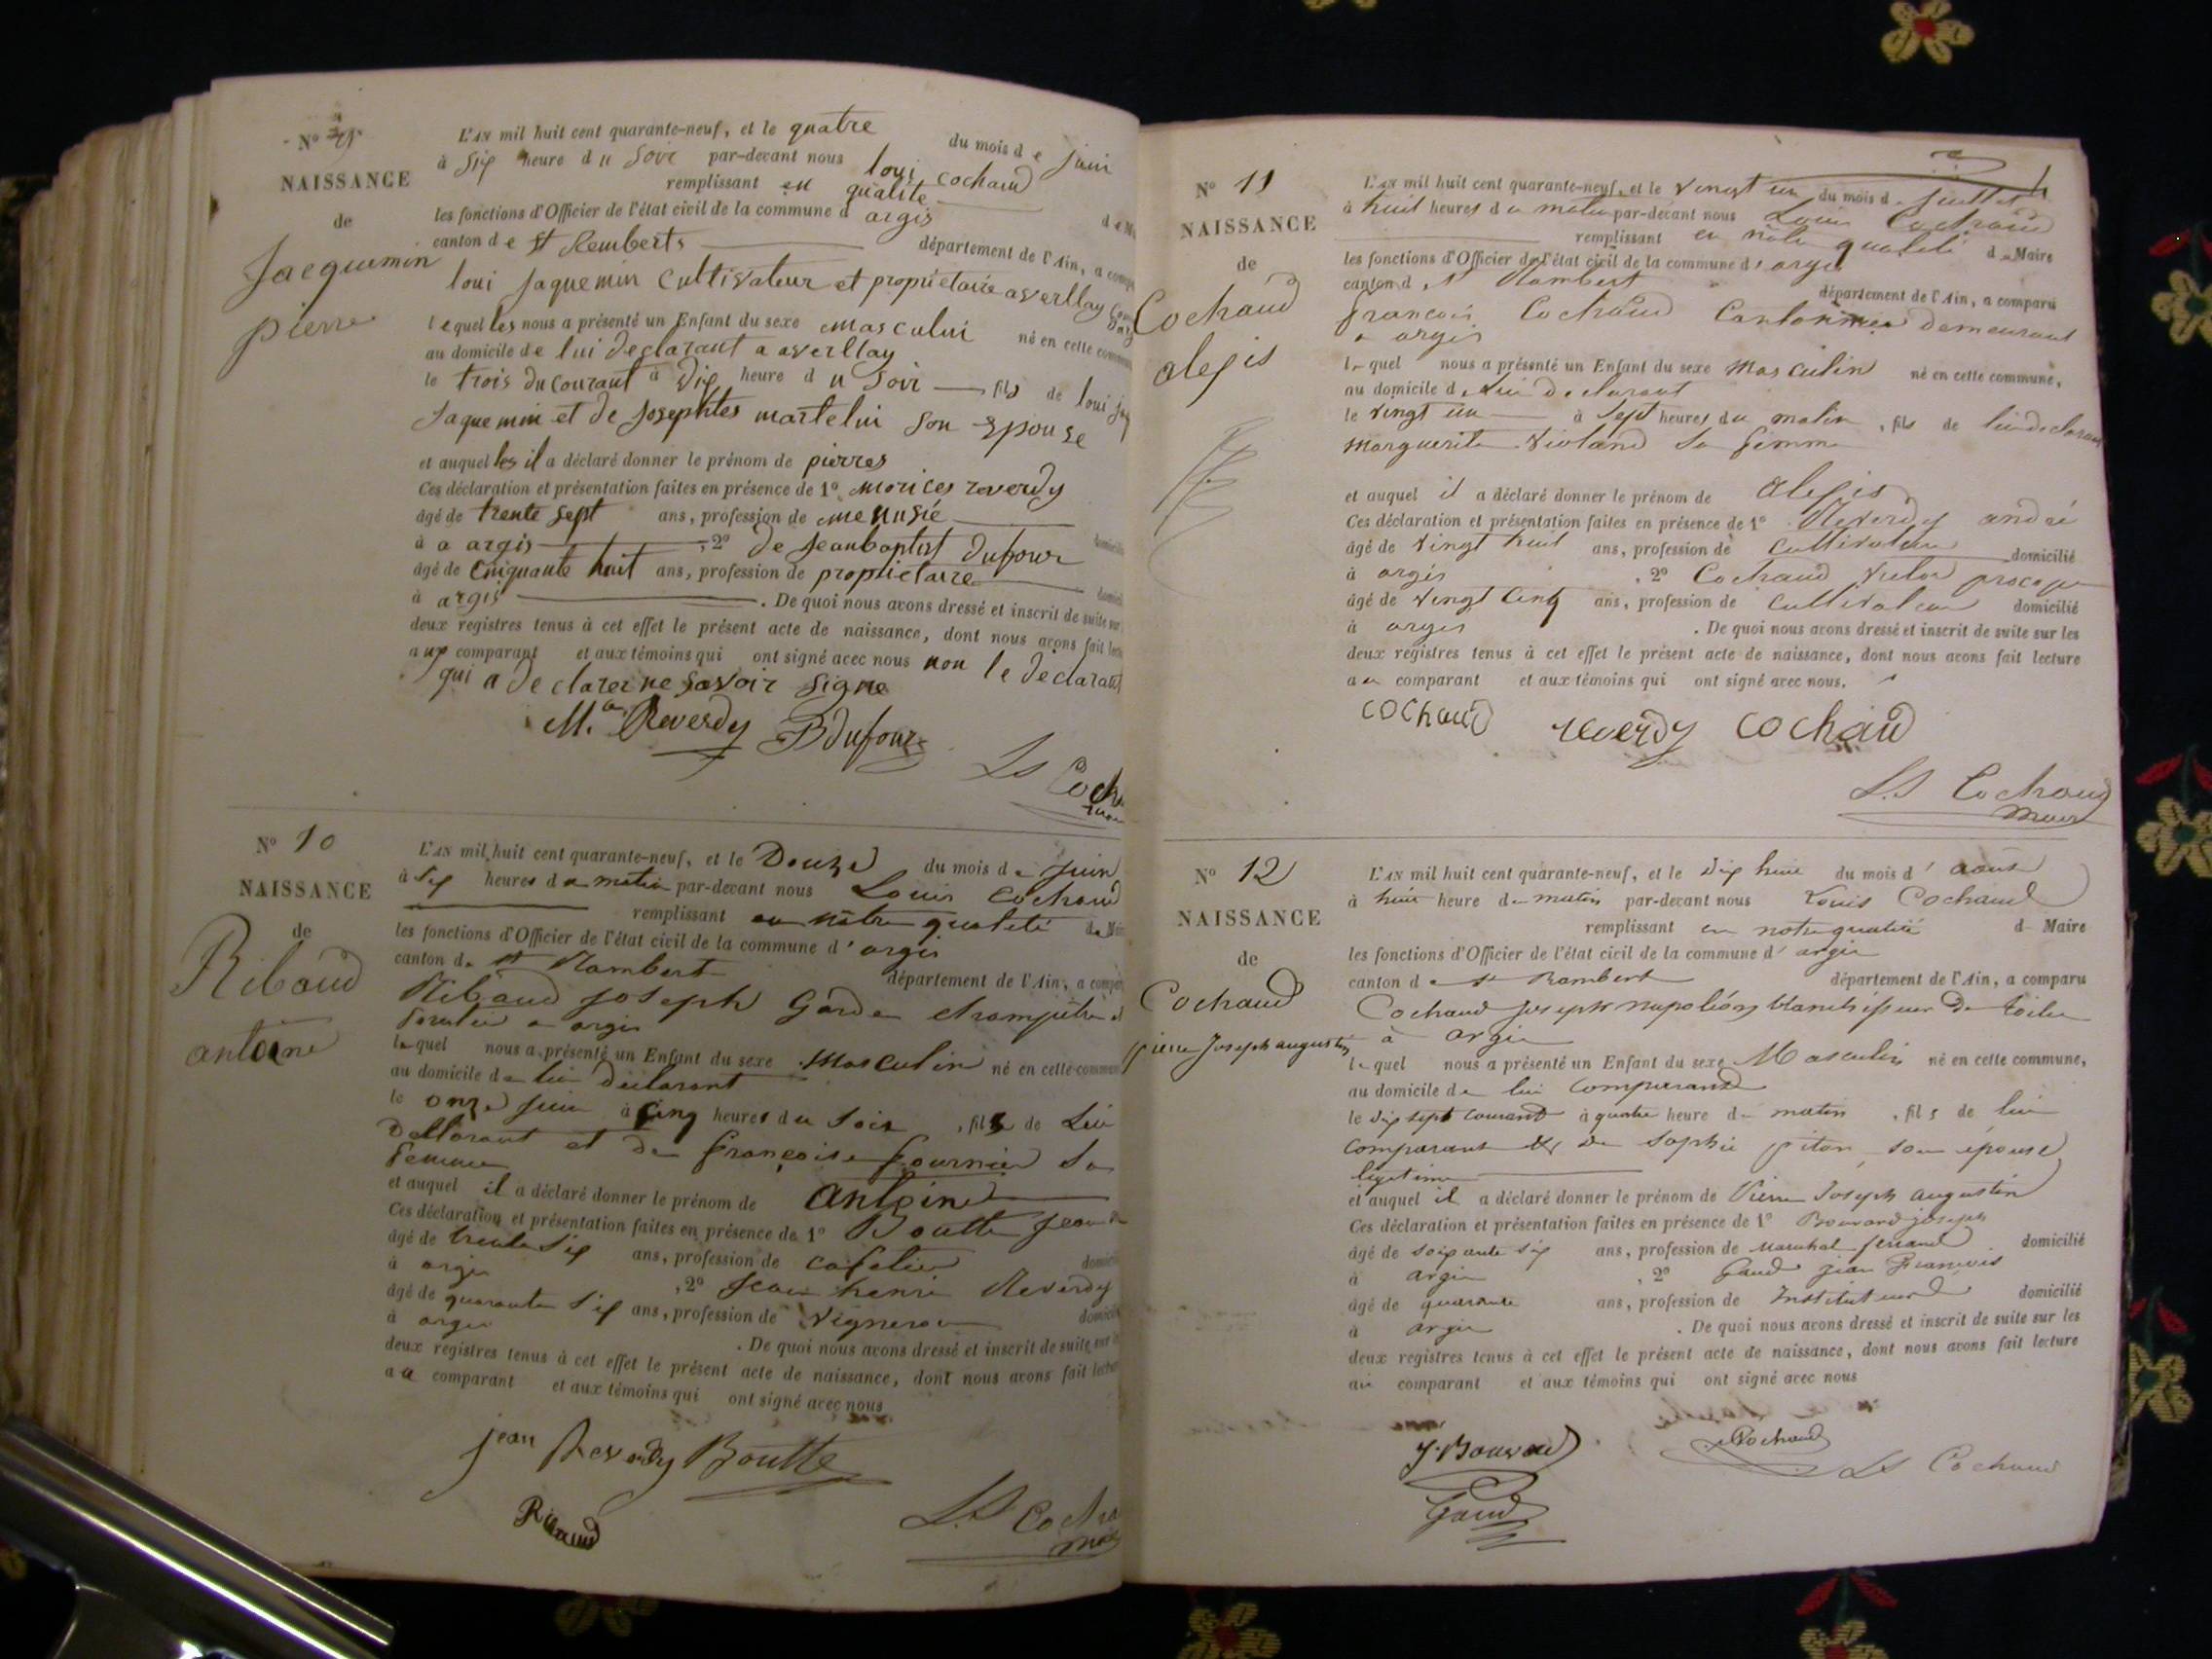 Nº 9
NAISSANCE
de
Jacquemin
pierre
L'AN mil huit cent quarante-neuf, et le quatre du mois de juin
à six heure du Soir par-devant nous loui cochaud
remplissant en qualite d
les fonctions d'Officier de l'état civil de la commune d argis
canton de St Remberts département de l'Ain, a
loui jaquemin Cultivateur et proprietaire a averllay
lequel les nous a présenté un Enfant du sexe masculin né en cette
au domicile de lui declarant a averllay
le trois du courant à dix heure du Soir fils de loui
jaquemin et de josephtes martelin Son Epouse
et auquel les il a déclaré donner le prénom de pierres
Ces déclaration et présentation faites en présence de 1º morices reverdy
âgé de trente Sept ans, profession de menusié
à a argis , 2º de jeanbaptist Dufour
âgé de Cinquante huit ans, profession de proprietaire
à argis . De quoi nous avons dressé et inscrit de suite sur
deux registres tenus à cet effet le présent acte de naissance, dont nous avons fait
aux comparant et aux témoins qui ont signé avec nous non le declarant
qui a declarer ne savoir Signe
Ma Reverdy BDufour
Ls Coch
Nº 10
NAISSANCE
de
Ribaud
antoine
L'AN mil huit cent quarante-neuf, et le Douze du mois de juin
à Six heures du matin par-devant nous Louis Cochaud
remplissant en nôtre qualité de
les fonctions d'Officier de l'état civil de la commune d'argis
canton de St Rambert département de l'Ain, a
Ribaud joseph Garde champêtre
a argis
lequel nous a présenté un Enfant du sexe Masculin né en cette
au domicile de lui déclarant
le onze juin à Cinq heures du Soir , fils de Lui
Déclarant et de françoise fournier Sa
femme
et auquel il a déclaré donner le prénom de antoine
Ces déclaration et présentation faites en présence de 1º Boutte jean
âgé de trente Six ans, profession de cafetier
à argis , 2º jean henri Reverdy
âgé de quarante Six ans, profession de Vigneron
à argis . De quoi nous avons dressé et inscrit de suite sur
deux registres tenus à cet effet le présent acte de naissance, dont nous avons fait
au comparant et aux témoins qui ont signé avec nous
jean Reverdy Boutte
Ribaud
L.S Cocha
Nº 11
NAISSANCE
de
Cochaud
alexis
L'AN mil huit cent quarante-neuf, et le Vingt un du mois de juillet
à huit heures du matin par-devant nous Louis Cochaud
remplissant en nôtre qualité de Maire
les fonctions d'Officier de l'état civil de la commune d'argis
canton d St Rambert département de l'Ain, a comparu
françois Cochaud Cantonnier demeurant
a argis
lequel nous a présenté un Enfant du sexe Masculin né en cette commune,
au domicile de Lui Déclarant
le Vingt un à Sept heures du matin , fils de lui declarant
Marguerite Violand Sa femme
et auquel il a déclaré donner le prénom de alexis
Ces déclaration et présentation faites en présence de 1º Reverdy andré
âgé de Vingt huit ans, profession de Cultivateur domicilié
à argis , 2º Cochaud Victor procope
âgé de Vingt Cinq ans, profession de Cultivateur domicilié
à argis . De quoi nous avons dressé et inscrit de suite sur les
deux registres tenus à cet effet le présent acte de naissance, dont nous avons fait lecture
au comparant et aux témoins qui ont signé avec nous.
COChaud reverdy cochaud
L.S Cochaud
Maire
Nº 12
NAISSANCE
de
Cochaud
pierre Joseph augustin
L'AN mil huit cent quarante-neuf, et le dix huit du mois d'août
à huit heure du matin par-devant nous Louis Cochaud
remplissant en notre qualité d Maire
les fonctions d'Officier de l'état civil de la commune d'argis
canton de St Rambert département de l'Ain, a comparu
Cochaud joseph napoléon blanchisseur de toiles
à argis
lequel nous a présenté un Enfant du sexe Masculin né en cette commune,
au domicile de lui comparant
le dix sept courant à quatre heure du matin , fils de lui
comparant & de sophie piton son épouse
légitime
et auquel il a déclaré donner le prénom de Pierre Joseph augustin
Ces déclaration et présentation faites en présence de 1º Bouvard joseph
âgé de soixante six ans, profession de Maréchal ferrand domicilié
à argis , 2º Gaud jean François
âgé de quarante ans, profession de Instituteur domicilié
à argis . De quoi nous avons dressé et inscrit de suite sur les
deux registres tenus à cet effet le présent acte de naissance, dont nous avons fait lecture
au comparant et aux témoins qui ont signé avec nous
J. Bouvard Cochaud
LS Cochaud
Gaud